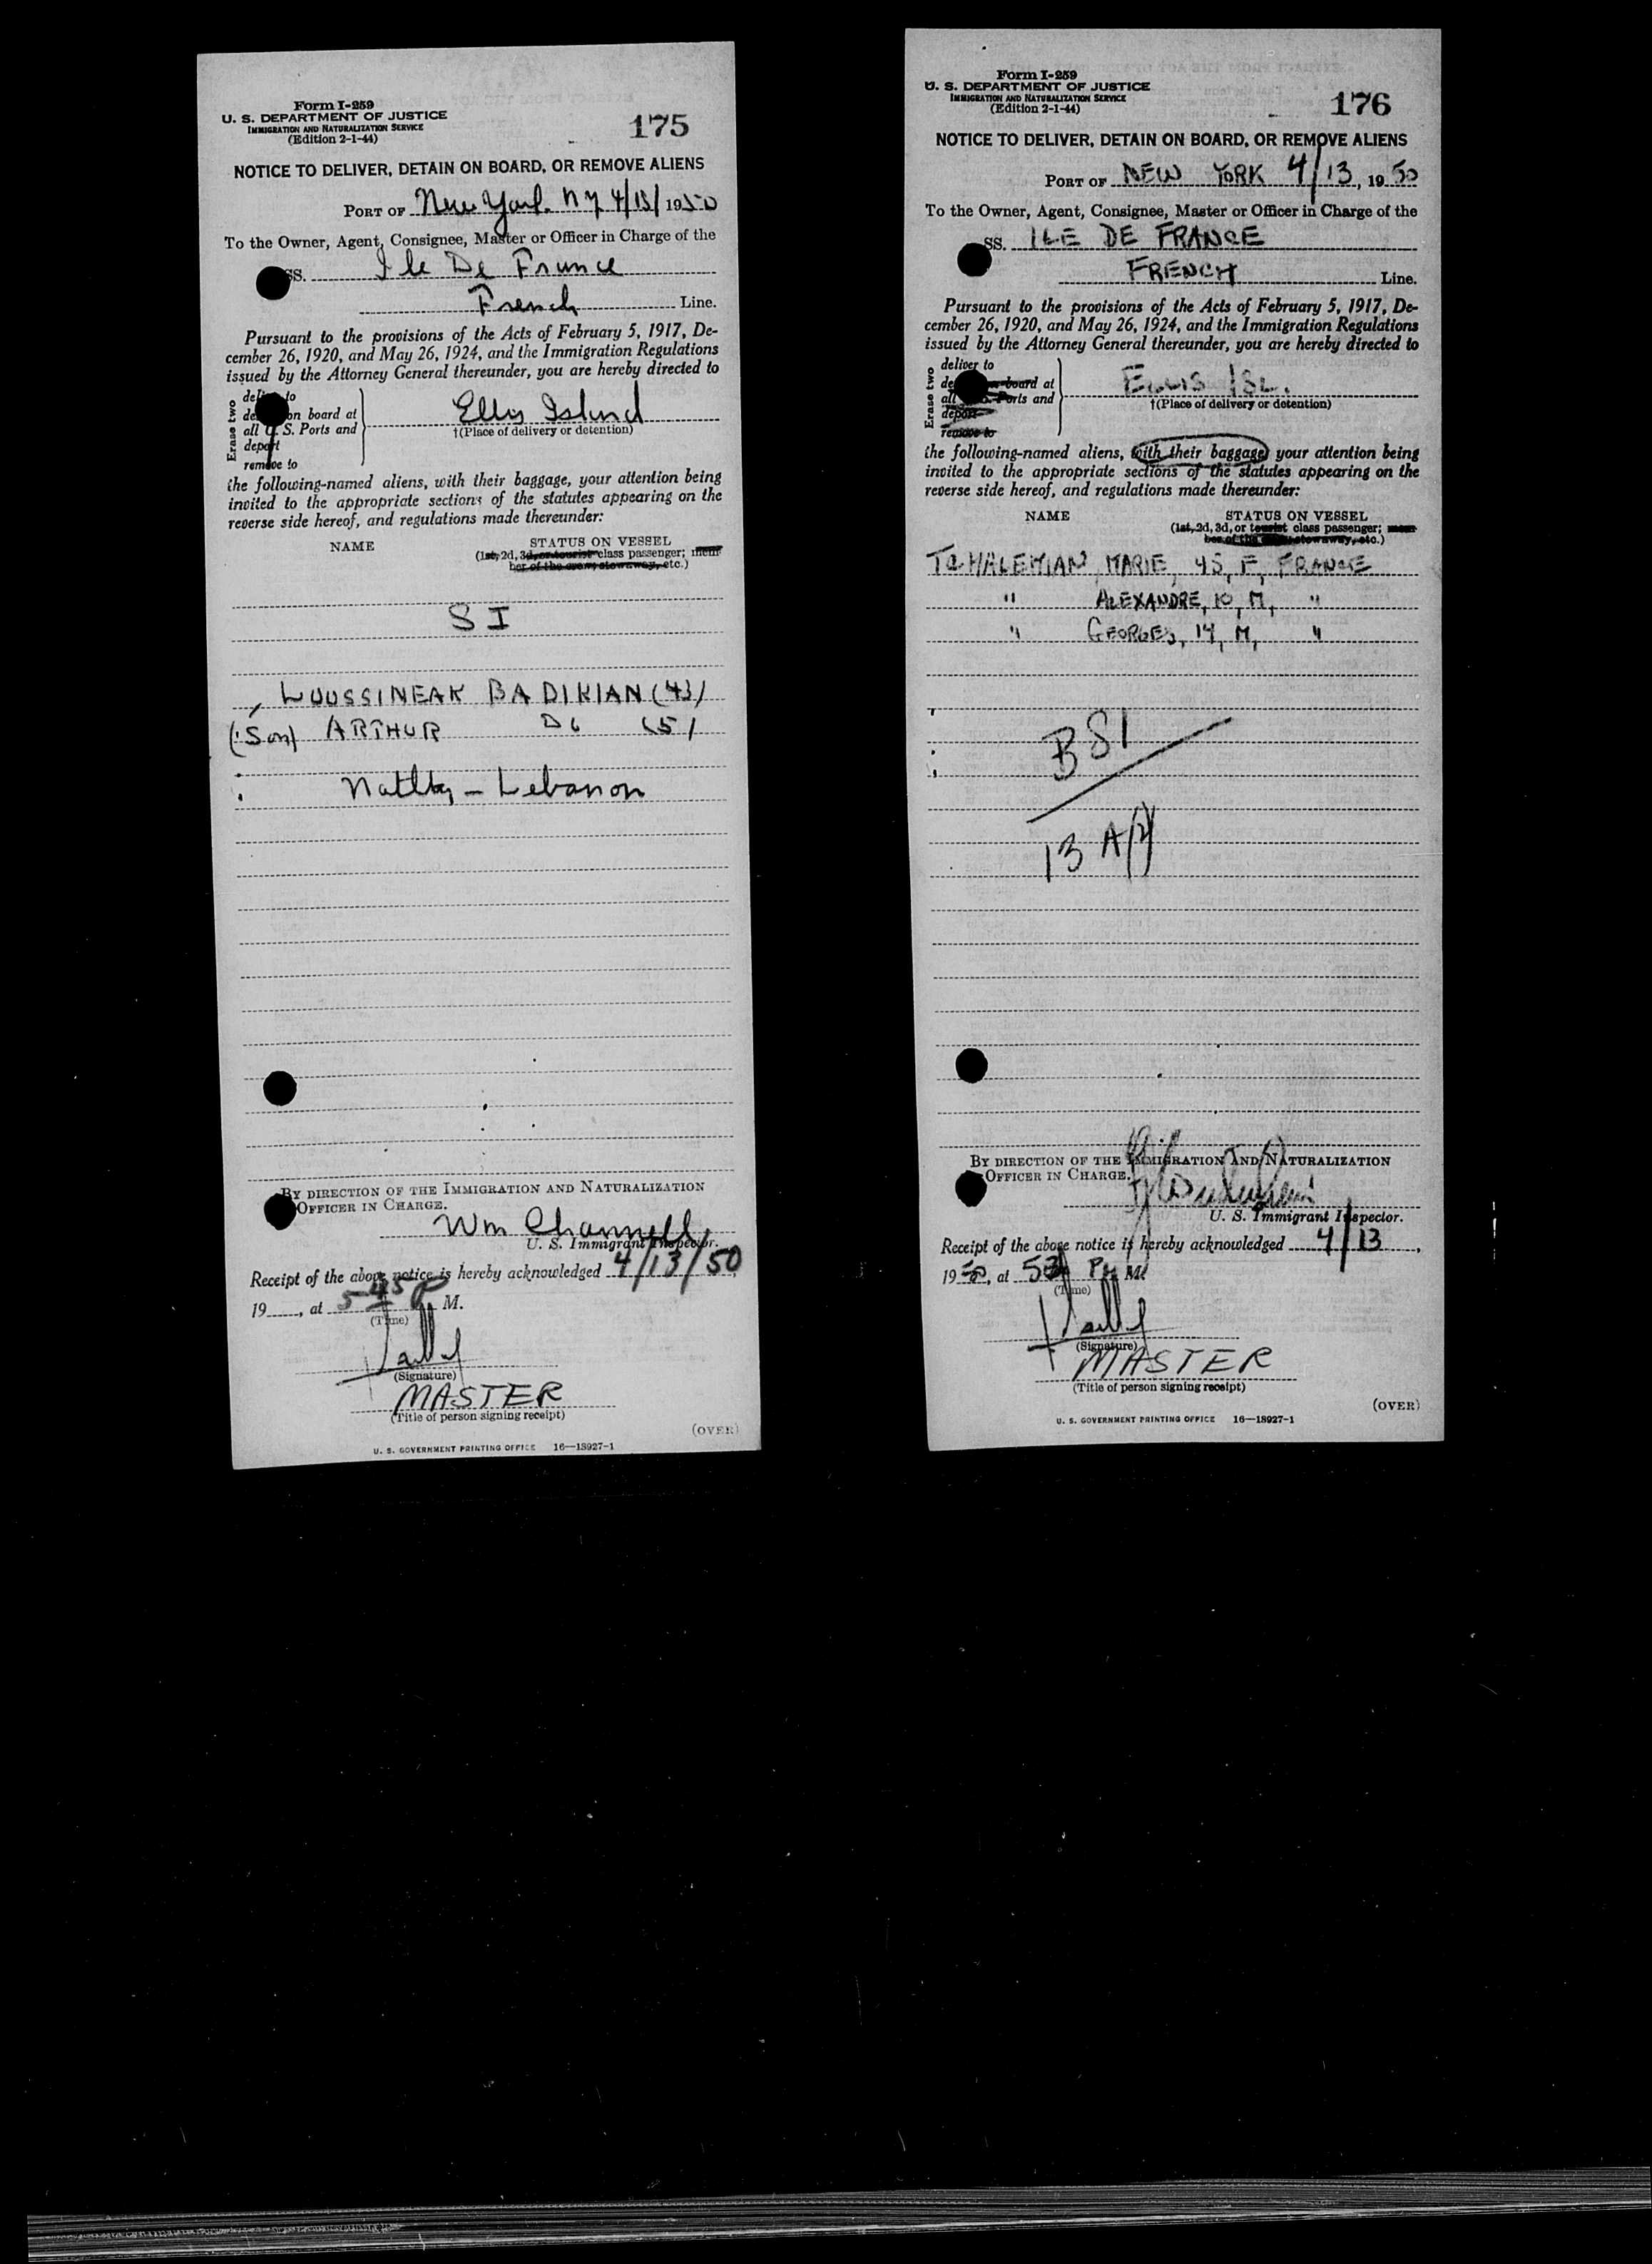 Form I-259
U. S. DEPARTMENT OF JUSTICE
IMMIGRATION AND NATURALIZATION SERVICE
(Edition 2-1-44)
175
NOTICE TO DELIVER, DETAIN ON BOARD, OR REMOVE ALIENS
PORT OF New York. N Y 4/13/1950
To the Owner, Agent, Consignee, Master or Officer in Charge of the
SS. Ile De France
French Line.
Pursuant to the provisions of the Acts of February 5, 1917, De-
cember 26, 1920, and May 26, 1924, and the Immigration Regulations
issued by the Attorney General thereunder, you are hereby directed to
Erase two
to
on board at
all U. S. Ports and
deport
remove to
Ellis Island
†(Place of delivery or detention)
the following-named aliens, with their baggage, your attention being
invited to the appropriate sections of the statutes appearing on the
reverse side hereof, and regulations made thereunder:
NAME
STATUS ON VESSEL
(1st, 2d, 3d, or tourist class passenger; mem-
ber of the crew, stowaway, etc.)
S I
LOUSSINEAK BADIKIAN (43)
(Son) ARTHUR Do (5)
Natlty - Lebanon
BY DIRECTION OF THE IMMIGRATION AND NATURALIZATION
OFFICER IN CHARGE.
Wm Channell
U. S. Immigrant Inspector.
Receipt of the above notice is hereby acknowledged 4/13/50,
19, at 5 45 P M.
(Time)
(Signature)
MASTER
(Title of person signing receipt)
(OVER)
U. S. GOVERNMENT PRINTING OFFICE 16—18927-1
Form I-259
U. S. DEPARTMENT OF JUSTICE
IMMIGRATION AND NATURALIZATION SERVICE
(Edition 2-1-44)
176
NOTICE TO DELIVER, DETAIN ON BOARD, OR REMOVE ALIENS
PORT OF NEW YORK 4/13, 1950
To the Owner, Agent, Consignee, Master or Officer in Charge of the
SS. ILE DE FRANCE
FRENCH Line.
Pursuant to the provisions of the Acts of February 5, 1917, De-
cember 26, 1920, and May 26, 1924, and the Immigration Regulations
issued by the Attorney General thereunder, you are hereby directed to
Erase two
deliver to
board at
all U. S. Ports and
deport
remove to
ELLIS ISL.
†(Place of delivery or detention)
the following-named aliens, with their baggage, your attention being
invited to the appropriate sections of the statutes appearing on the
reverse side hereof, and regulations made thereunder:
NAME
STATUS ON VESSEL
(1st, 2d, 3d, or tourist class passenger; mem-
ber of the crew, stowaway, etc.)
TCHALEMIAN, MARIE, 45, F, FRANCE
" ALEXANDRE, 10, M, "
" GEORGES, 14, M, "
BSI
13 A(2)
BY DIRECTION OF THE IMMIGRATION AND NATURALIZATION
OFFICER IN CHARGE.
U. S. Immigrant Inspector.
Receipt of the above notice is hereby acknowledged 4/13,
1950, at P M.
(Time)
(Signature)
MASTER
(Title of person signing receipt)
(OVER)
U. S. GOVERNMENT PRINTING OFFICE 16—18927-1